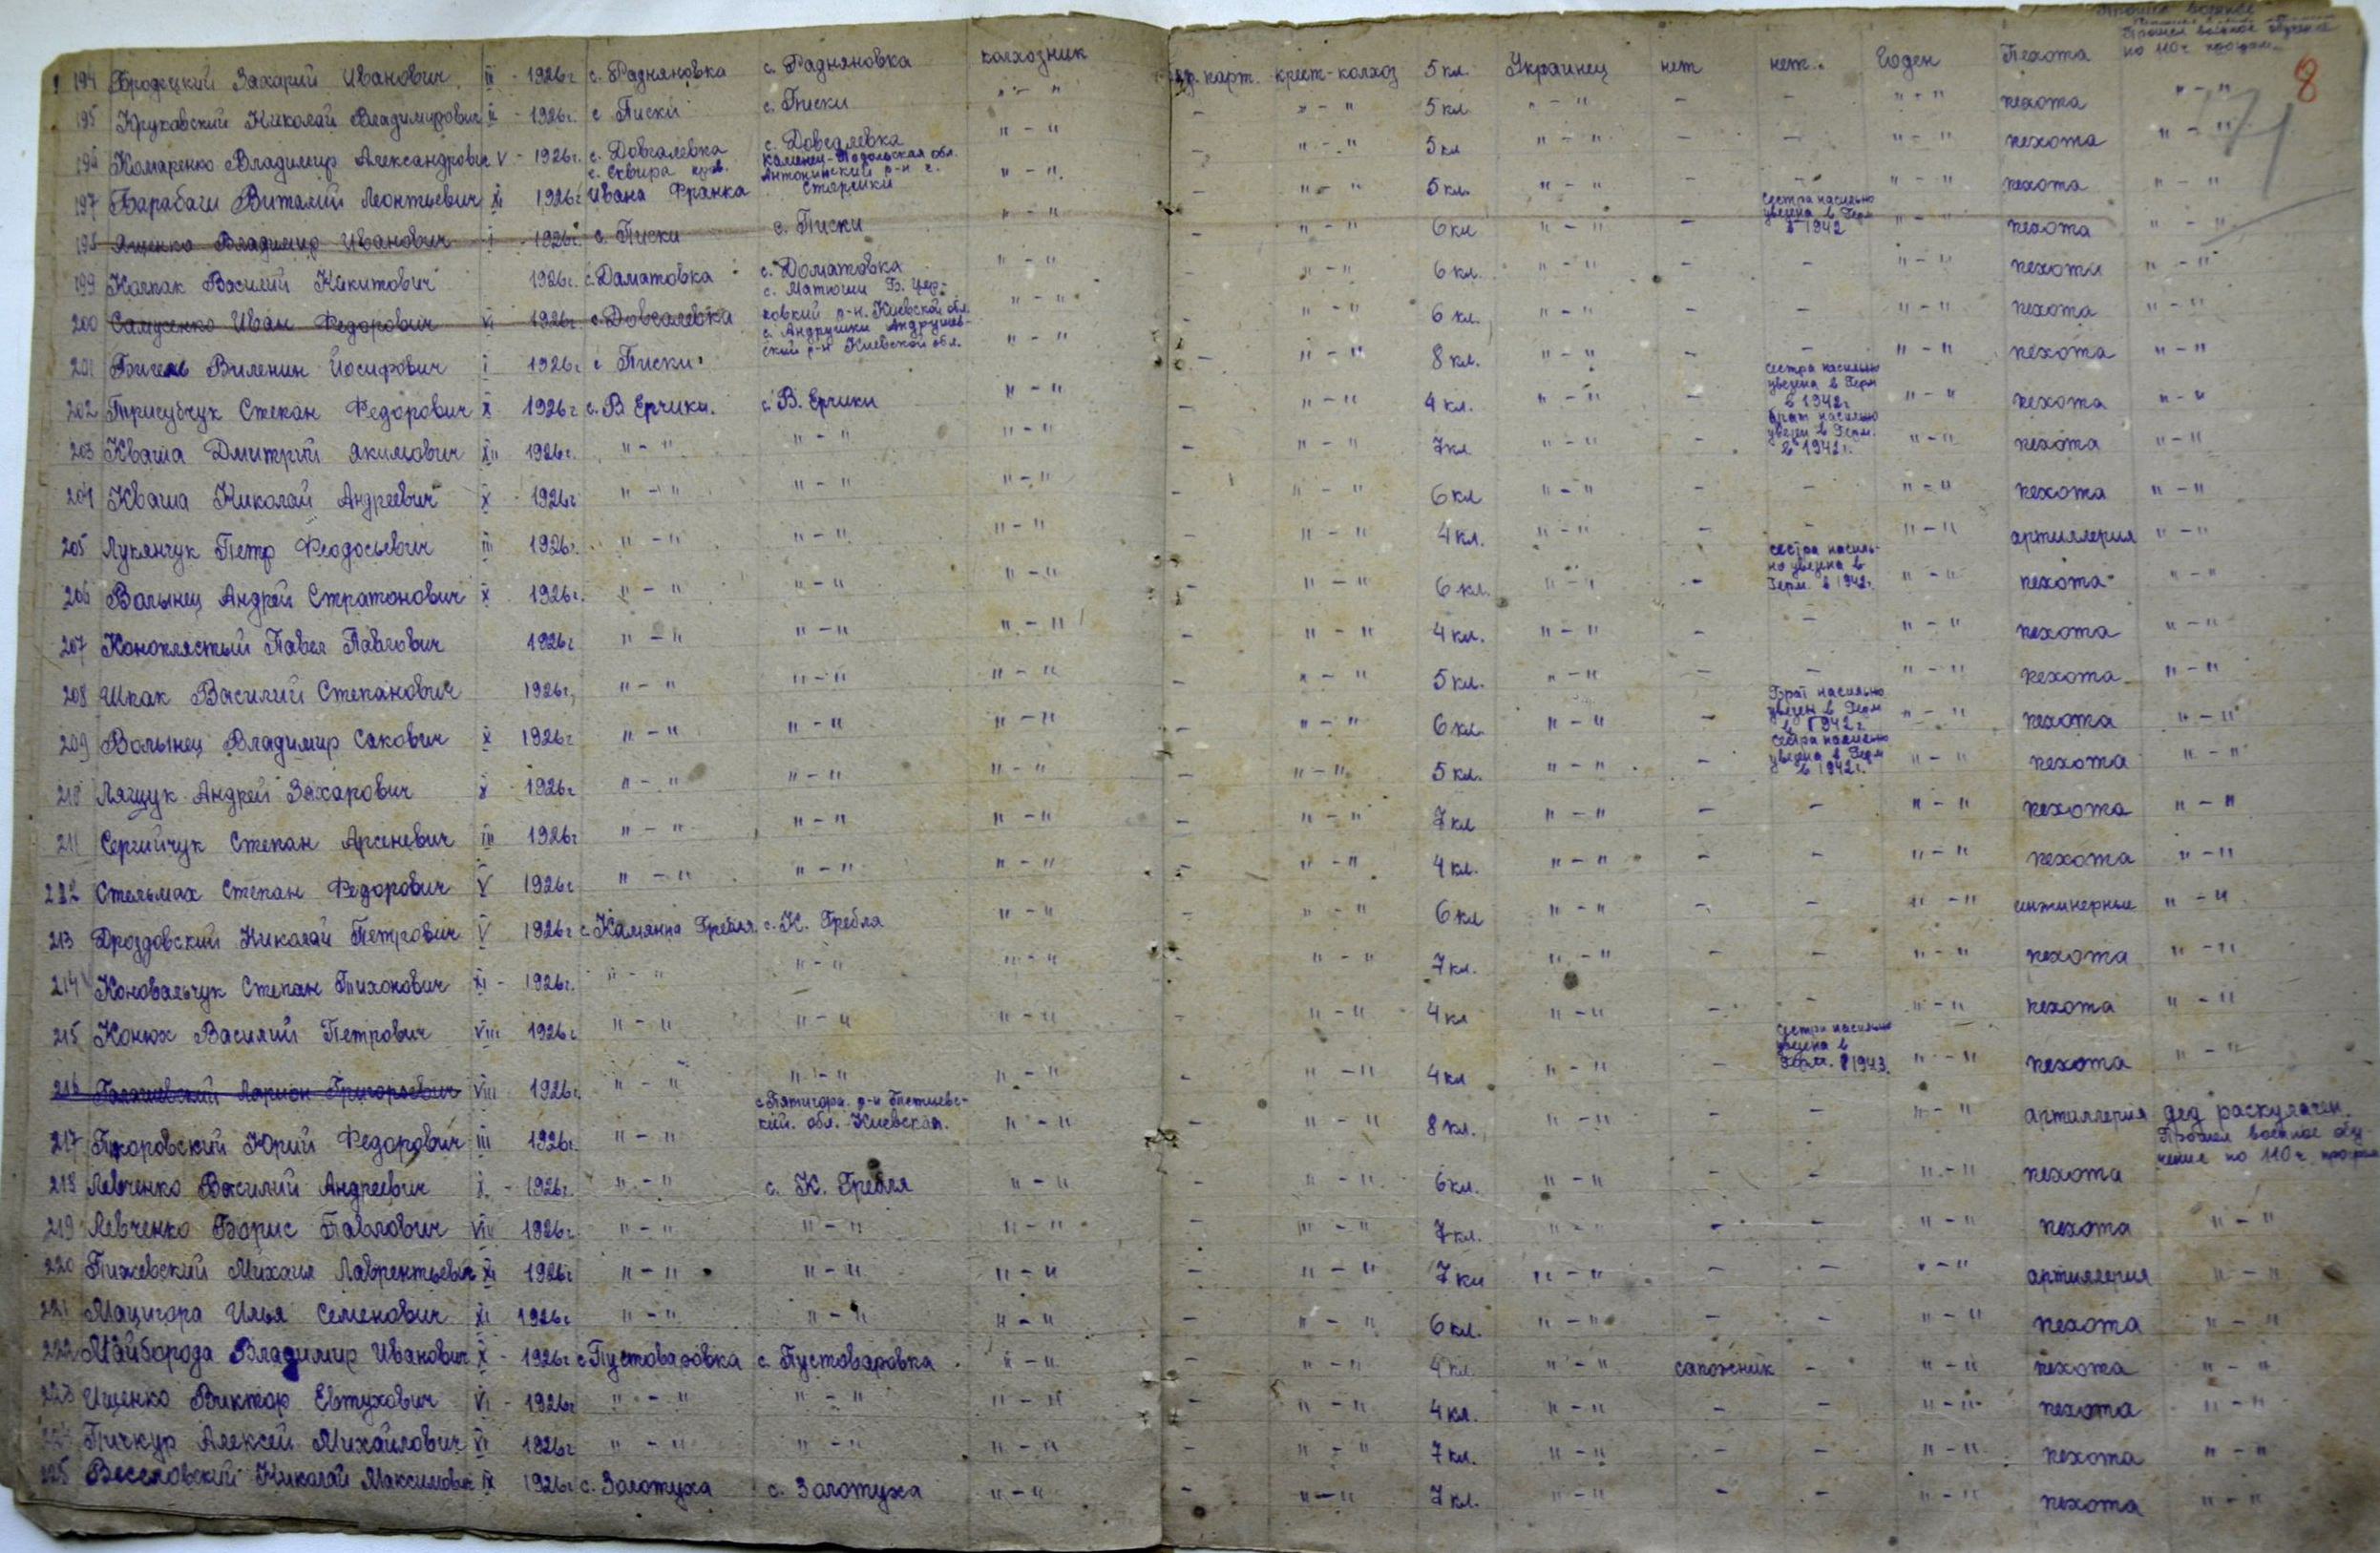 Прошел военное обучение
по 110 ч. програм.
8
194 Бродецкий Захарий Иванович III - 1926г с. Радняновка с. Радняновка колхозник крест-колхоз 5 кл. Украинец нет нет. Годен Пехота
195 Круковский Николай Владимирович II - 1926г. с Писки с. Писки "-" - "-" 5 кл "-" - - "-" пехота "-"
196 Комаренко Владимир Александрович V - 1926г. с. Довгалевка с. Довгалевка "-" - "-" 5 кл "-" - - "-" пехота "-"
197 Барабаш Виталий Леонтьевич XI 1926г с. Сквира Ивана Франка Каменец-Подольская обл. Антонинский р-н с. Старики "-" - "-" 5 кл. "-" - - "-" пехота "-"
198 Ященко Владимир Иванович I - 1926г. с. Писки с. Писки "-" - "-" 6 кл "-" - сестра насильно увезена в Герм в 1942 "-" пехота "-"
199 Колпак Василий Никитович 1926г. с. Даматовка с. Доматовка "-" - "-" 6 кл. "-" - - "-" пехота "-"
200 Самусенко Иван Федорович VI 1926г. с. Довгалевка с. Матюши Б. Церковкий р-н. Киевской обл. "-" - "-" 6 кл. "-" - - "-" пехота "-"
201 Бигель Виленин Иосифович I 1926г. с Писки с. Андрушки Андрушевский р-н Киевской обл. "-" - "-" 8 кл. "-" - - "-" пехота "-"
202 Трисубчук Степан Федорович X 1926г с. В Ерчики. с. В. Ерчики "-" - "-" 4 кл. "-" - сестра насильно увезена в Герм в 1942г "-" пехота "-"
203 Кваша Дмитрий Якимович XII 1926г. "-" "-" "-" - "-" 7 кл "-" - брат насильно увезен в Герм. в 1942г. "-" пехота "-"
204 Кваша Николай Андреевич X - 1926г "-" "-" "-" - "-" 6 кл "-" - - "-" пехота "-"
205 Лукянчук Петр Феодосьевич III 1926г. "-" "-" "-" - "-" 4 кл. "-" - - "-" артиллерия "-"
206 Волынец Андрей Стратонович X 1926г. "-" "-" "-" - "-" 6 кл. "-" - сестра насильно увезена в Герм. в 1942г. "-" пехота "-"
207 Коноплястый Павел Павлович 1926г "-" "-" "-" - "-" 4 кл. "-" - - "-" пехота "-"
208 Шпак Василий Степанович 1926г, "-" "-" "-" - "-" 5 кл. "-" - - "-" пехота "-"
209 Волынец Владимир Сакович X 1926г "-" "-" "-" - "-" 6 кл. "-" - Брат насильно увезен в Герм в 1942 г. "-" пехота "-"
210 Лящук Андрей Захарович X - 1926г "-" "-" "-" - "-" 5 кл. "-" - сестра насильно увезена в Герм в 1942г. "-" пехота "-"
211 Сергийчук Степан Арсеневич III 1926г "-" "-" "-" - "-" 7 кл "-" - - "-" пехота "-"
212 Стельмах Степан Федорович V 1926г "-" "-" "-" - "-" 4 кл. "-" - - "-" пехота "-"
213 Дроздовский Николай Петрович V 1926г с Камянна Гребля с. К. Гребля "-" - "-" 6 кл "-" - - "-" инжинерные "-"
214 Коновальчук Степан Тихонович XI - 1926г. "-" "-" "-" - "-" 7 кл. "-" - - "-" пехота "-"
215 Конюх Василий Петрович VIII 1926г "-" "-" "-" - "-" 4 кл "-" - - "-" пехота "-"
216 Ларион Григорьевич VIII 1926г. "-" "-" "-" - "-" 4 кл "-" - сестра насильно увезена в Герм. в 1943. "-" пехота "-"
217 Юрий Федорович III 1926г. "-" с Пятигора р-н Тетиевский. обл. Киевская. "-" - "-" 8 кл. "-" - - "-" артиллерия дед раскулачен.
218 Левченко Василий Андреевич X - 1926г. "-" с. К. Гребля "-" - "-" 6 кл. "-" - - "-" пехота Прошел военное обучение по 110 ч. програм
219 Левченко Борис Павлович VIII 1926г "-" "-" "-" - "-" 7 кл. "-" - - "-" пехота "-"
220 Пижевский Михаил Лаврентьевич XI 1926г "-" "-" "-" - "-" 7 кл "-" - - "-" артиллерия "-"
221 Мацигора Илья Семенович XI 1926г "-" "-" "-" - "-" 6 кл. "-" - - "-" пехота "-"
222 Майборода Владимир Иванович X - 1926г с Пустоваровка с. Пустоваровка "-" - "-" 4 кл "-" сапожник - "-" пехота "-"
223 Ищенко Виктор Евтухович VI - 1926г "-" "-" "-" - "-" 4 кл. "-" - - "-" пехота "-"
224 Гричкур Алексей Михайлович VI 1926г "-" "-" "-" - "-" 7 кл. "-" - - "-" пехота "-"
225 Веселовский Николай Максимович IX 1926г с. Золотуха с. Золотуха "-" - "-" 7 кл. "-" - - "-" пехота "-"